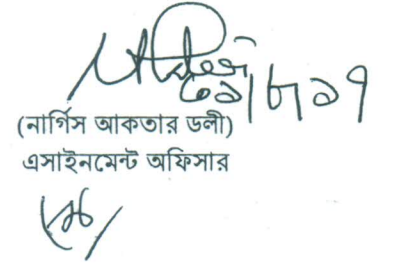 ৩১/৮/১৭
(নার্গিস আকতার ডলী)
এসাইনমেন্ট অফিসার